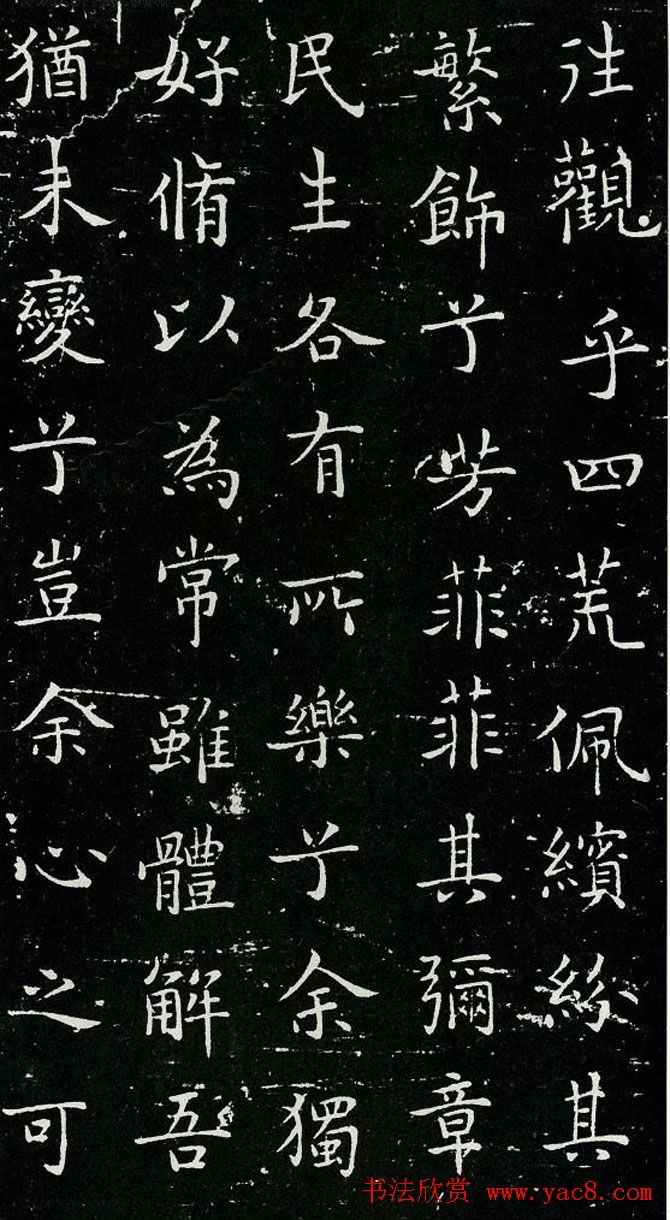 往觀乎四荒佩繽紛其
繁飾兮芳菲菲其彌章
民生各有所樂兮余獨
好脩以為常雖體解吾
猶未變兮豈余心之可
书法欣赏 www.yac8.com